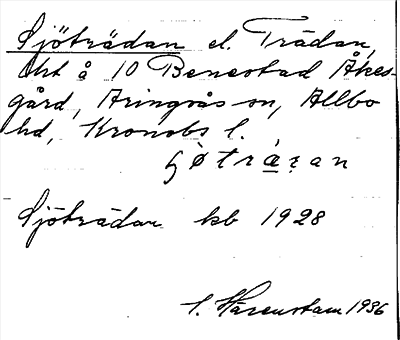 Sjöträdan el. Trädan,
skt å 10 Benestad Åkes-
gård, Aringsås sn, Allbo
hd, Kronobs l.
Sjöträdan kb 1928
S. Härenstam 1936